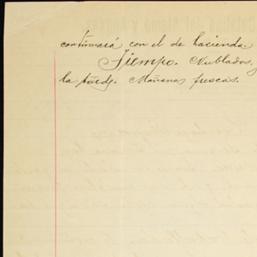 continuará con el de hacienda.
Tiempo. Nublados,
la tarde. Mañanas frescas.